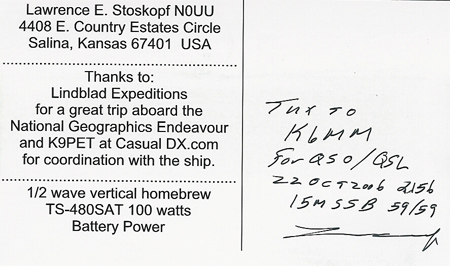 Lawrence E. Stoskopf N0UU
4408 E. Country Estates Circle
Salina, Kansas 67401  USA
Thanks to:
Lindblad Expeditions
for a great trip aboard the
National Geographics Endeavour
and K9PET at Casual DX.com
for coordination with the ship.
1/2 wave vertical homebrew
TS-480SAT 100 watts
Battery Power
Tnx to
K6MM
For QSO/QSL
22 OCT 2006 2156
15M SSB 59/59